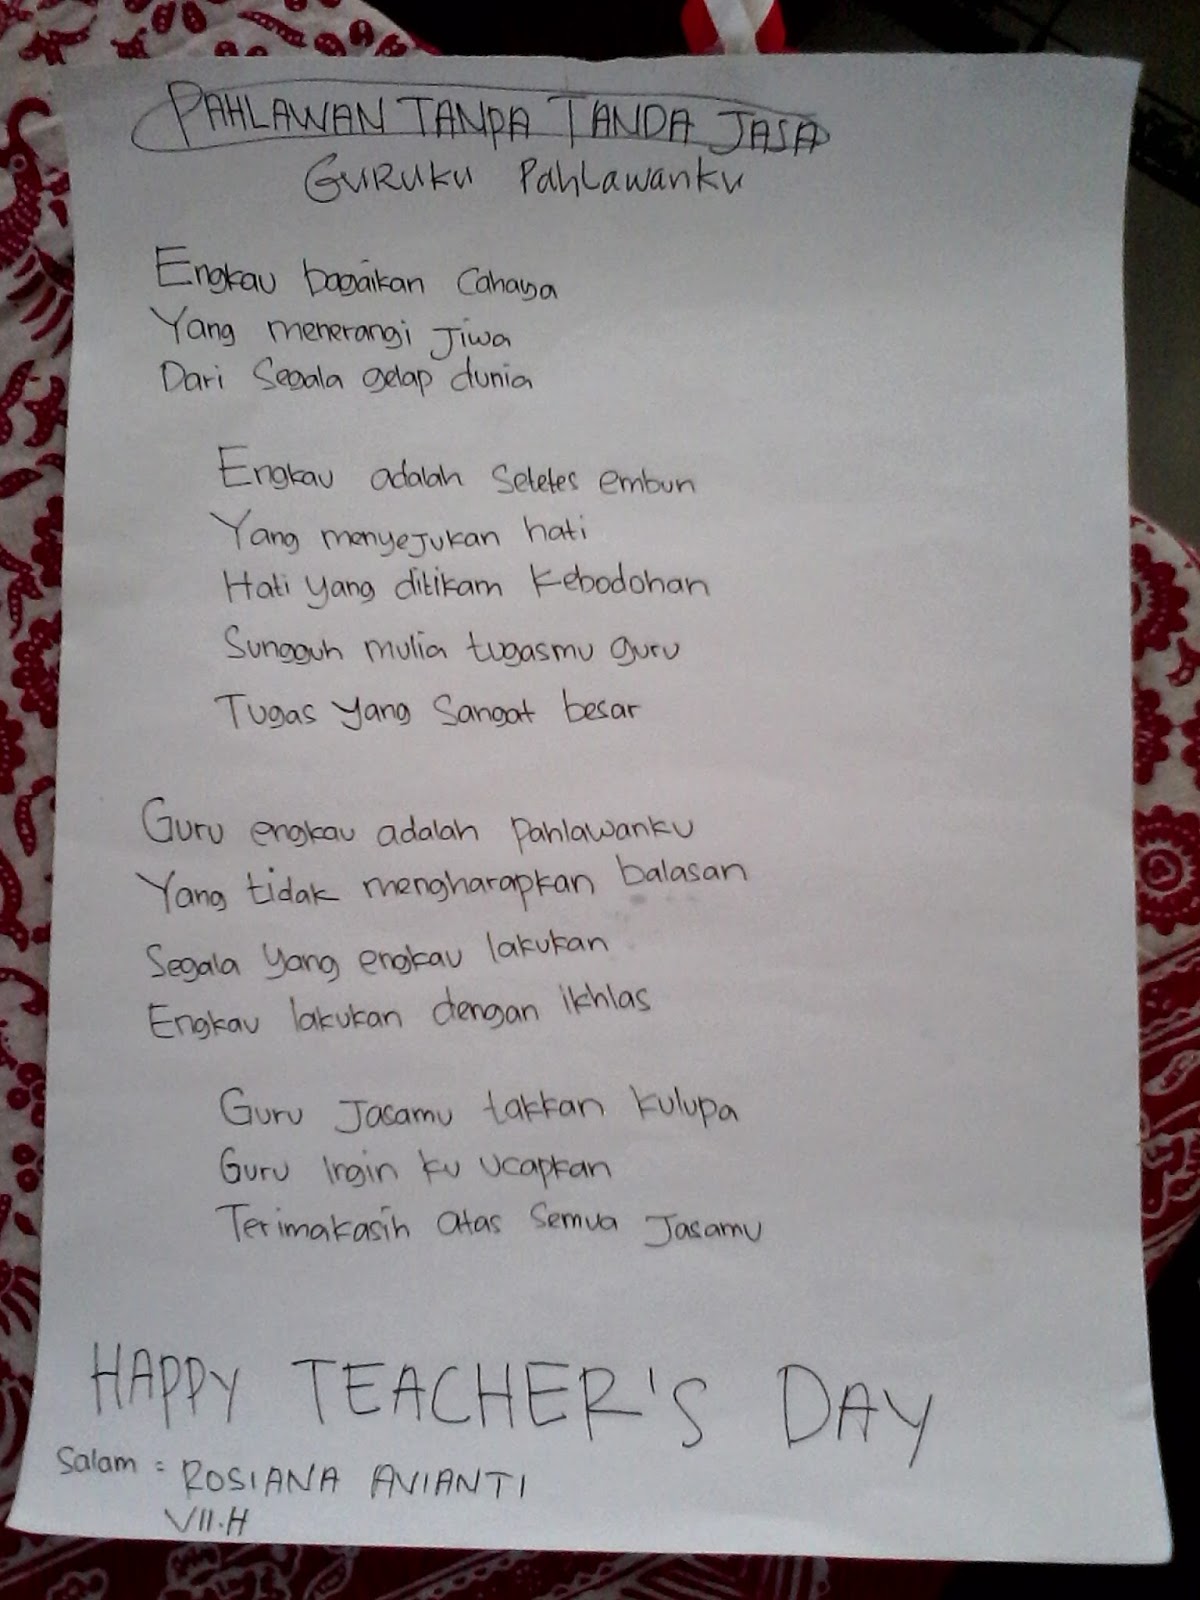 PAHLAWAN TANPA TANDA JASA
GURUKU PahLawanku
Engkau bagaikan Cahaya
Yang menerangi Jiwa
Dari Segala gelap dunia
Engkau adalah Setetes embun
Yang menyejukan hati
Hati yang ditikam Kebodohan
Sungguh mulia tugasmu guru
Tugas yang Sangat besar
Guru engkau adalah Pahlawanku
Yang tidak mengharapkan balasan
Segala yang engkau lakukan
Engkau lakukan dengan ikhlas
Guru Jasamu takkan kulupa
Guru Ingin ku ucapkan
Terimakasih atas Semua Jasamu
HAPPY TEACHER'S DAY
Salam = ROSIANA AVIANTI
VII.H